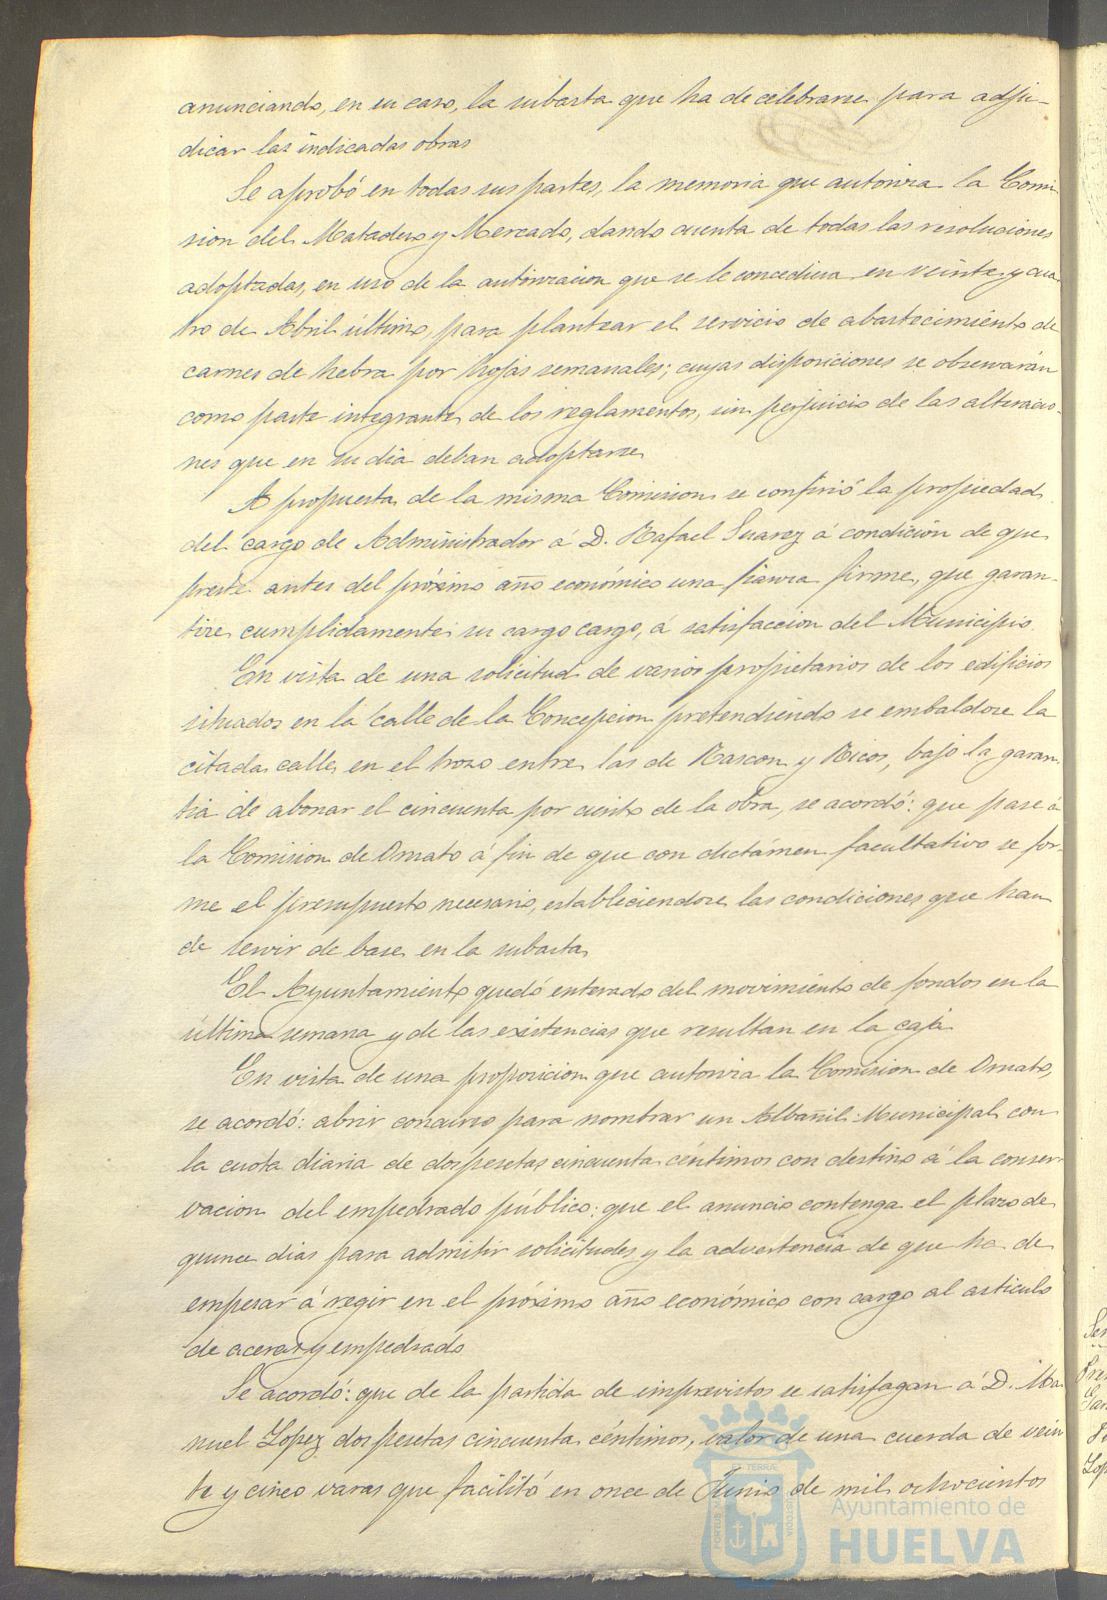 anunciando, en su caso, la subasta que ha de celebrarse para adju-
dicar las indicadas obras
Se aprobó en todas sus partes, la memoria que autoriza la Comi
sion del Matadero y Mercado, dando cuenta de todas las resoluciones
adoptadas, en uso de la autorizacion que se le concediera en veinte y cua
tro de Abril último, para plantear el servicio de abastecimiento de
carnes de hebra por hojas semanales; cuyas disposiciones se observarán
como parte integrante de los reglamentos, sin perjuicio de las alteracio-
nes que en su dia deban adoptarse
A propuesta de la misma Comision se confirió la propiedad
del cargo de Administrador á D. Rafael Suarez á condición de que
preste antes del próximo año económico una fianza firme, que garan-
tize cumplidamente su cargo cargo, á satisfaccion del Municipio.
En vista de una solicitud de varios propietarios de los edificios
situados en la calle de la Concepcion pretendiendo se embaldose la
citada calle en el trozo entre las de Rascon y Ricos, bajo la garan-
tia de abonar el cincuenta por ciento de la obra, se acordó: que pase á
la Comision de Ornato á fin de que con dictámen facultativo se for-
me el presupuesto necesario, estableciendose las condiciones que han
de servir de base en la subasta
El Ayuntamiento quedó enterado del movimiento de fondos en la
última semana y de las existencias que resultan en la caja
En vista de una proposicion que autoriza la Comision de Ornato,
se acordó: abrir concurso para nombrar un Albañil Municipal con
la cuota diaria de dos pesetas cincuenta céntimos con destino á la conser-
vacion del empedrado público: que el anuncio contenga el plazo de
quince dias para admitir solicitudes y la advertencia de que ha de
empezar á regir en el próximo año económico con cargo al articulo
de aceras y empedrado
Se acordó: que de la partida de imprevistos se satisfagan á D. Ma
nuel Lopez dos pesetas cincuenta céntimos, valor de una cuerda de vein
te y cinco varas que facilitó en once de Junio de mil ochocientos
Ayuntamiento de
HUELVA